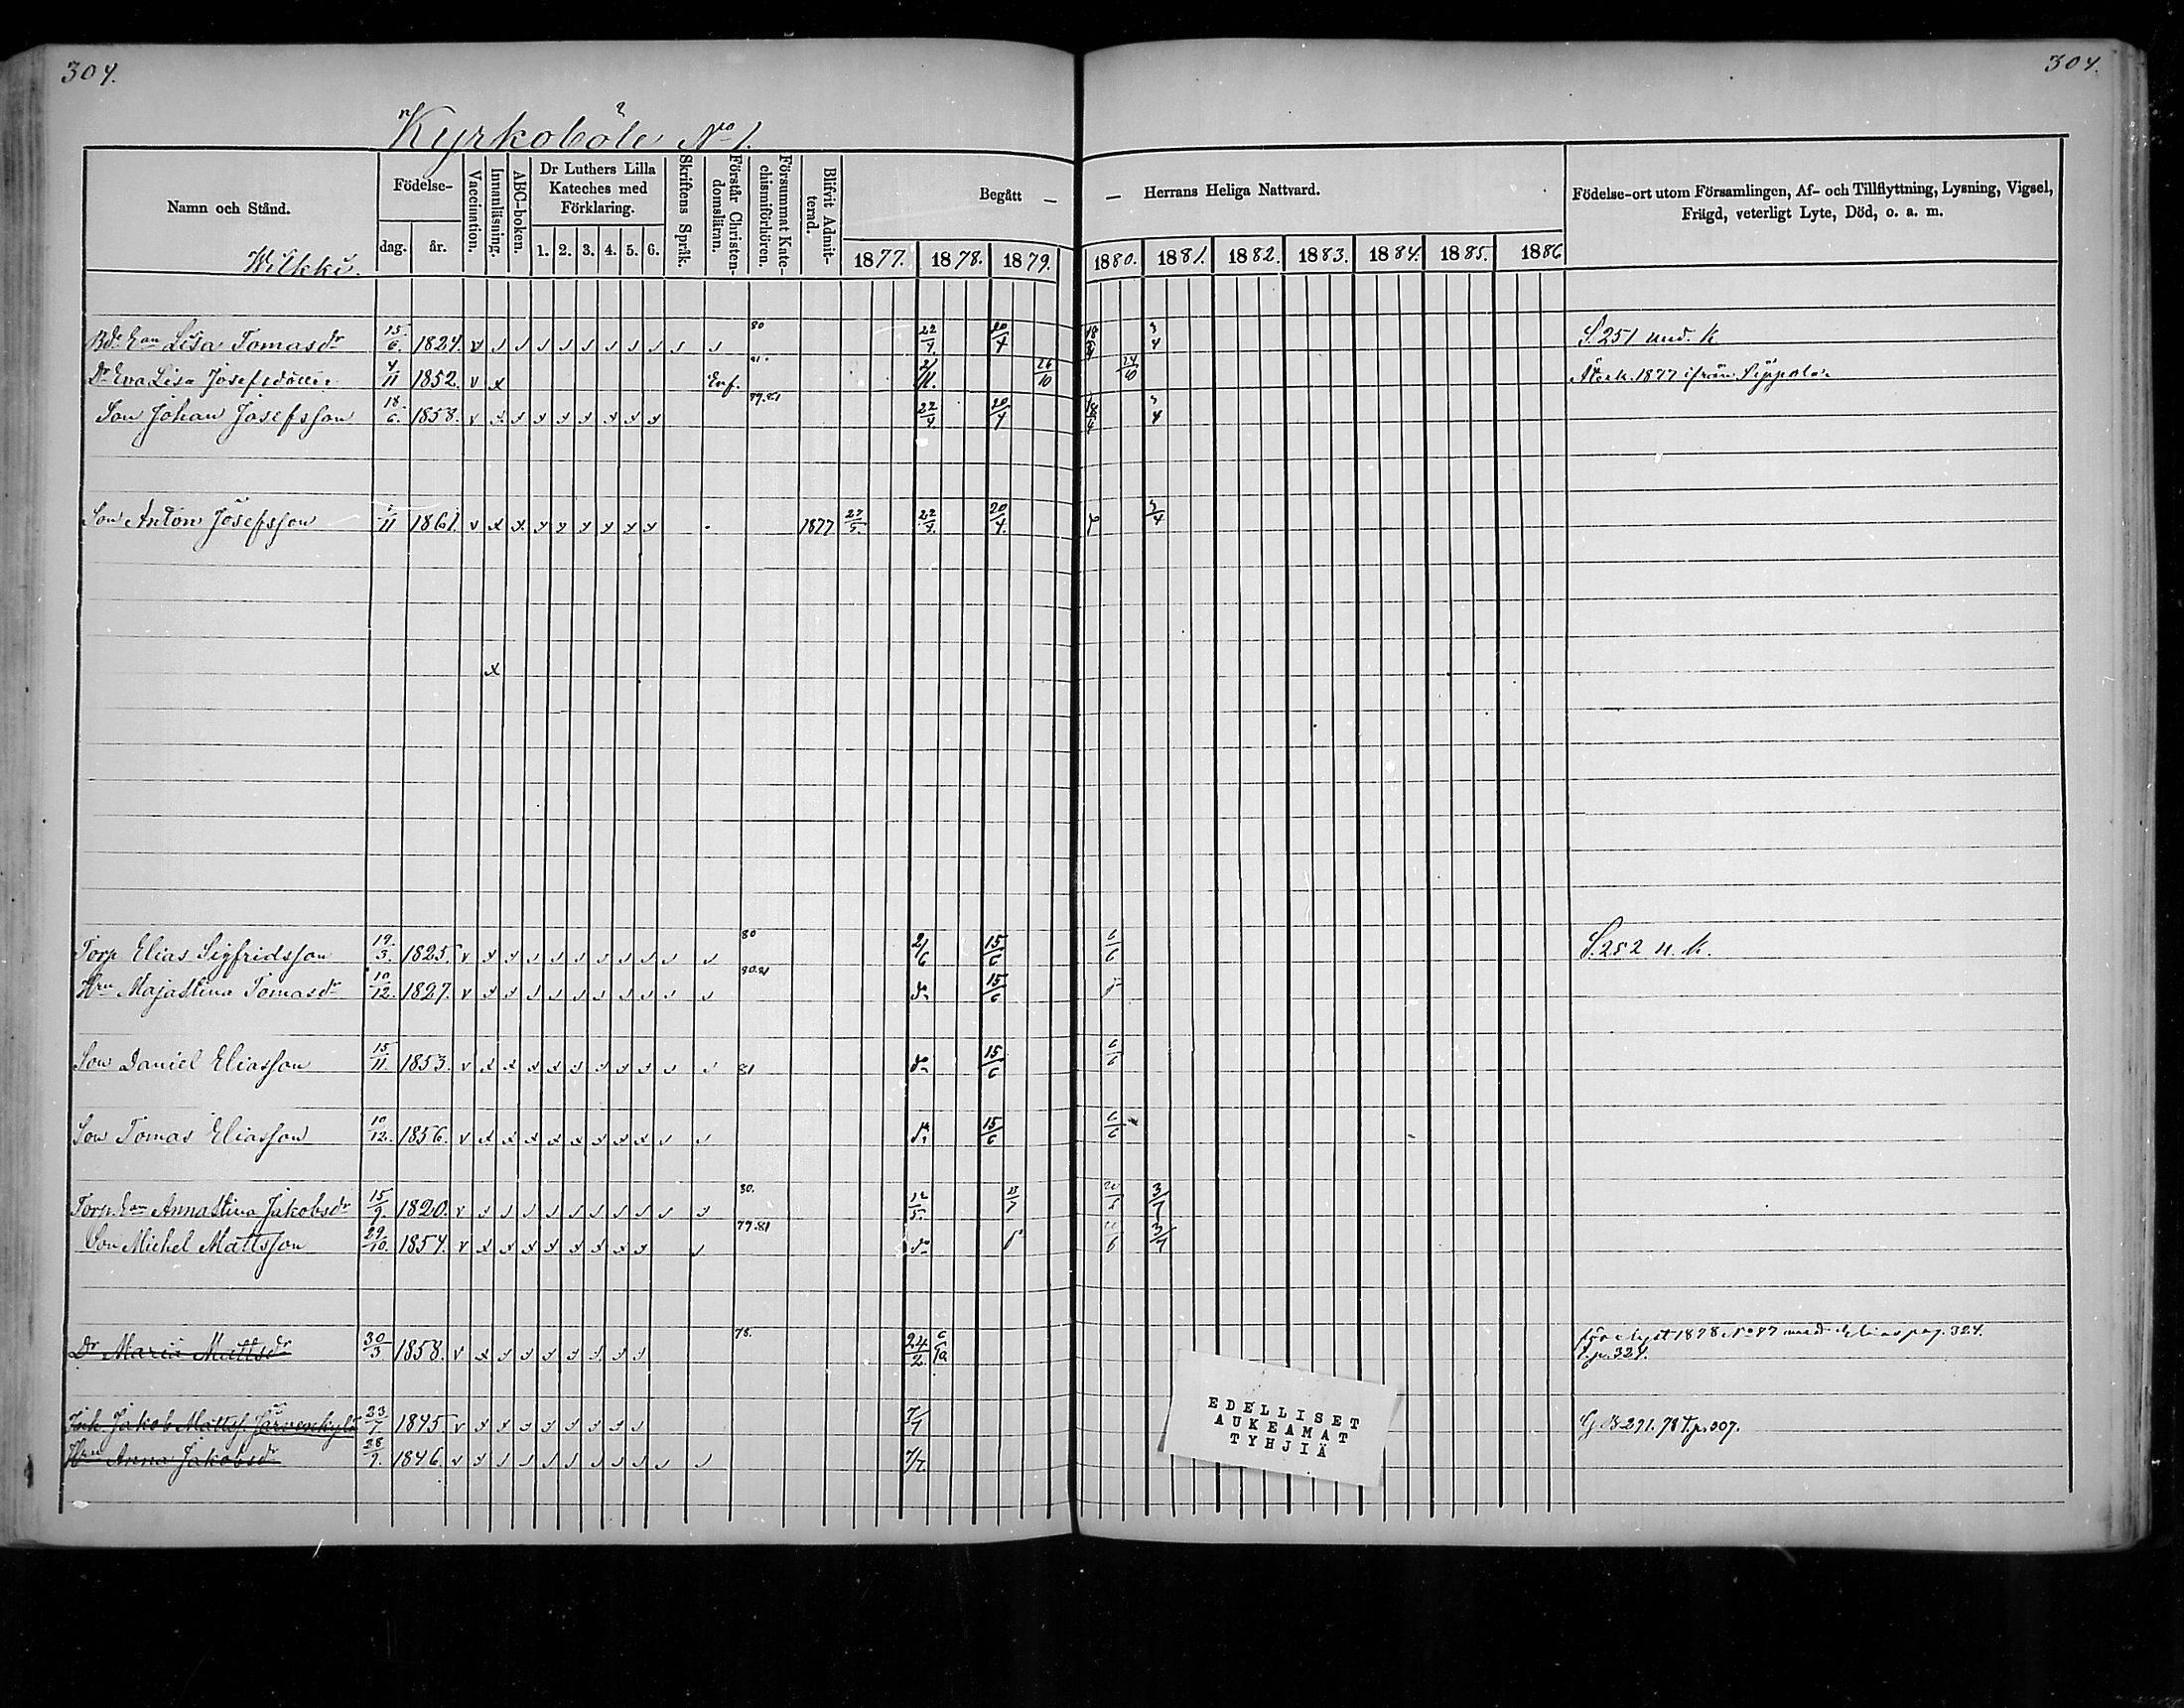 304. 304.
Kyrkoböle No 1.
Namn och Stånd. Födelse- Vaccination. Innanläsning. ABC-boken. Dr Luthers Lilla Kateches med Förklaring. Skriftens Språk. Förstår Christendomsläran. Försummat Katechismiförhören. Blifvit Admitterad. Begått — — Herrans Heliga Nattvard. Födelse-ort utom Församlingen, Af- och Tillflyttning, Lysning, Vigsel, Frägd, veterligt Lyte, Död, o. a. m.
dag. år. 1. 2. 3. 4. 5. 6. 1877. 1878. 1879. 1880. 1881. 1882. 1883. 1884. 1885. 1886
Wilkki.
Lisa Tomasdr 15/6. 1824. 80 22/4. 20/4 S. 251 und. K
Dr Eva Lisa Josefsdotter 4/11 1852. Enf. 81. 26/10 24/10 Återk. 1877 ifrån Sippola
Son Johan Josefsson 18/6. 1858. 79.81 22/4. 20/4
Son Anton Josefsson 1861. 1877 27/5. 22/4. 20/4. 3/4
Torp Elias Sigfridsson 19/3. 1825. 80 2/6 15/6 6/6 S. 252 u. K.
Hru Majastina Tomasdr 10/12. 1827. 80.81 do 15/6
Son Daniel Eliasson 15/11. 1853. 81 do 15/6 6/6
Son Tomas Eliasson 10/12. 1856. do 15/6 6/6
Torp. Annastina Jakobsdr 15/9 1820. 80. 3/7
Son Michel Mattsson 29/10. 1854. 79.81 do 3/7
Dr Maria Mattsdr 30/3. 1858. 78. 24/2 6/10. 1878 No 87 med Elias pag. 324.
T. p. 324.
Jakob Matts. 23/7 1845 7/7 291. 78 T. p. 307.
Hru Anna Jakobsdr 28/9. 1846. 7/7.
EDELLISET
AUKEAMAT
TYHJIÄ